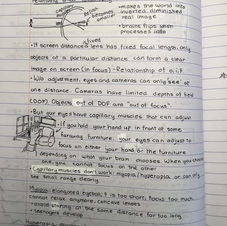 •makes the world into
inverted diminished
real image
•brains flips when
processes info
fixed
•If screen distance & lens has fixed focal length, only
objects of a particular distance can form a clear
image on screen (in focus) - Relationship of
•W/o adjustment, eyes and cameras can only "see" at
one distance. Cameras have limited depths of field
(DOF). Objects out of DOF are "out of focus".
•But our eyes have capillary muscles that can adjust
•If you hold your hand up in front of some
faraway furniture, your eyes can adjust to
focus on either your hand or the furniture
depending on what your brain chooses. When you choose
one, you cannot focus on the other
Capillary muscles don't work: myopia/hyperopia, or can only
see small range clearly
Myopia: Elongated eyeball, f is too short, focus too much,
cannot relax anymore, concave lenses
•avoid staring at the same distance for too long
•teenagers develop